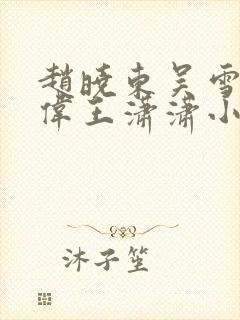 趙曉東吳雪
偉王瀟瀟小
沐子笙